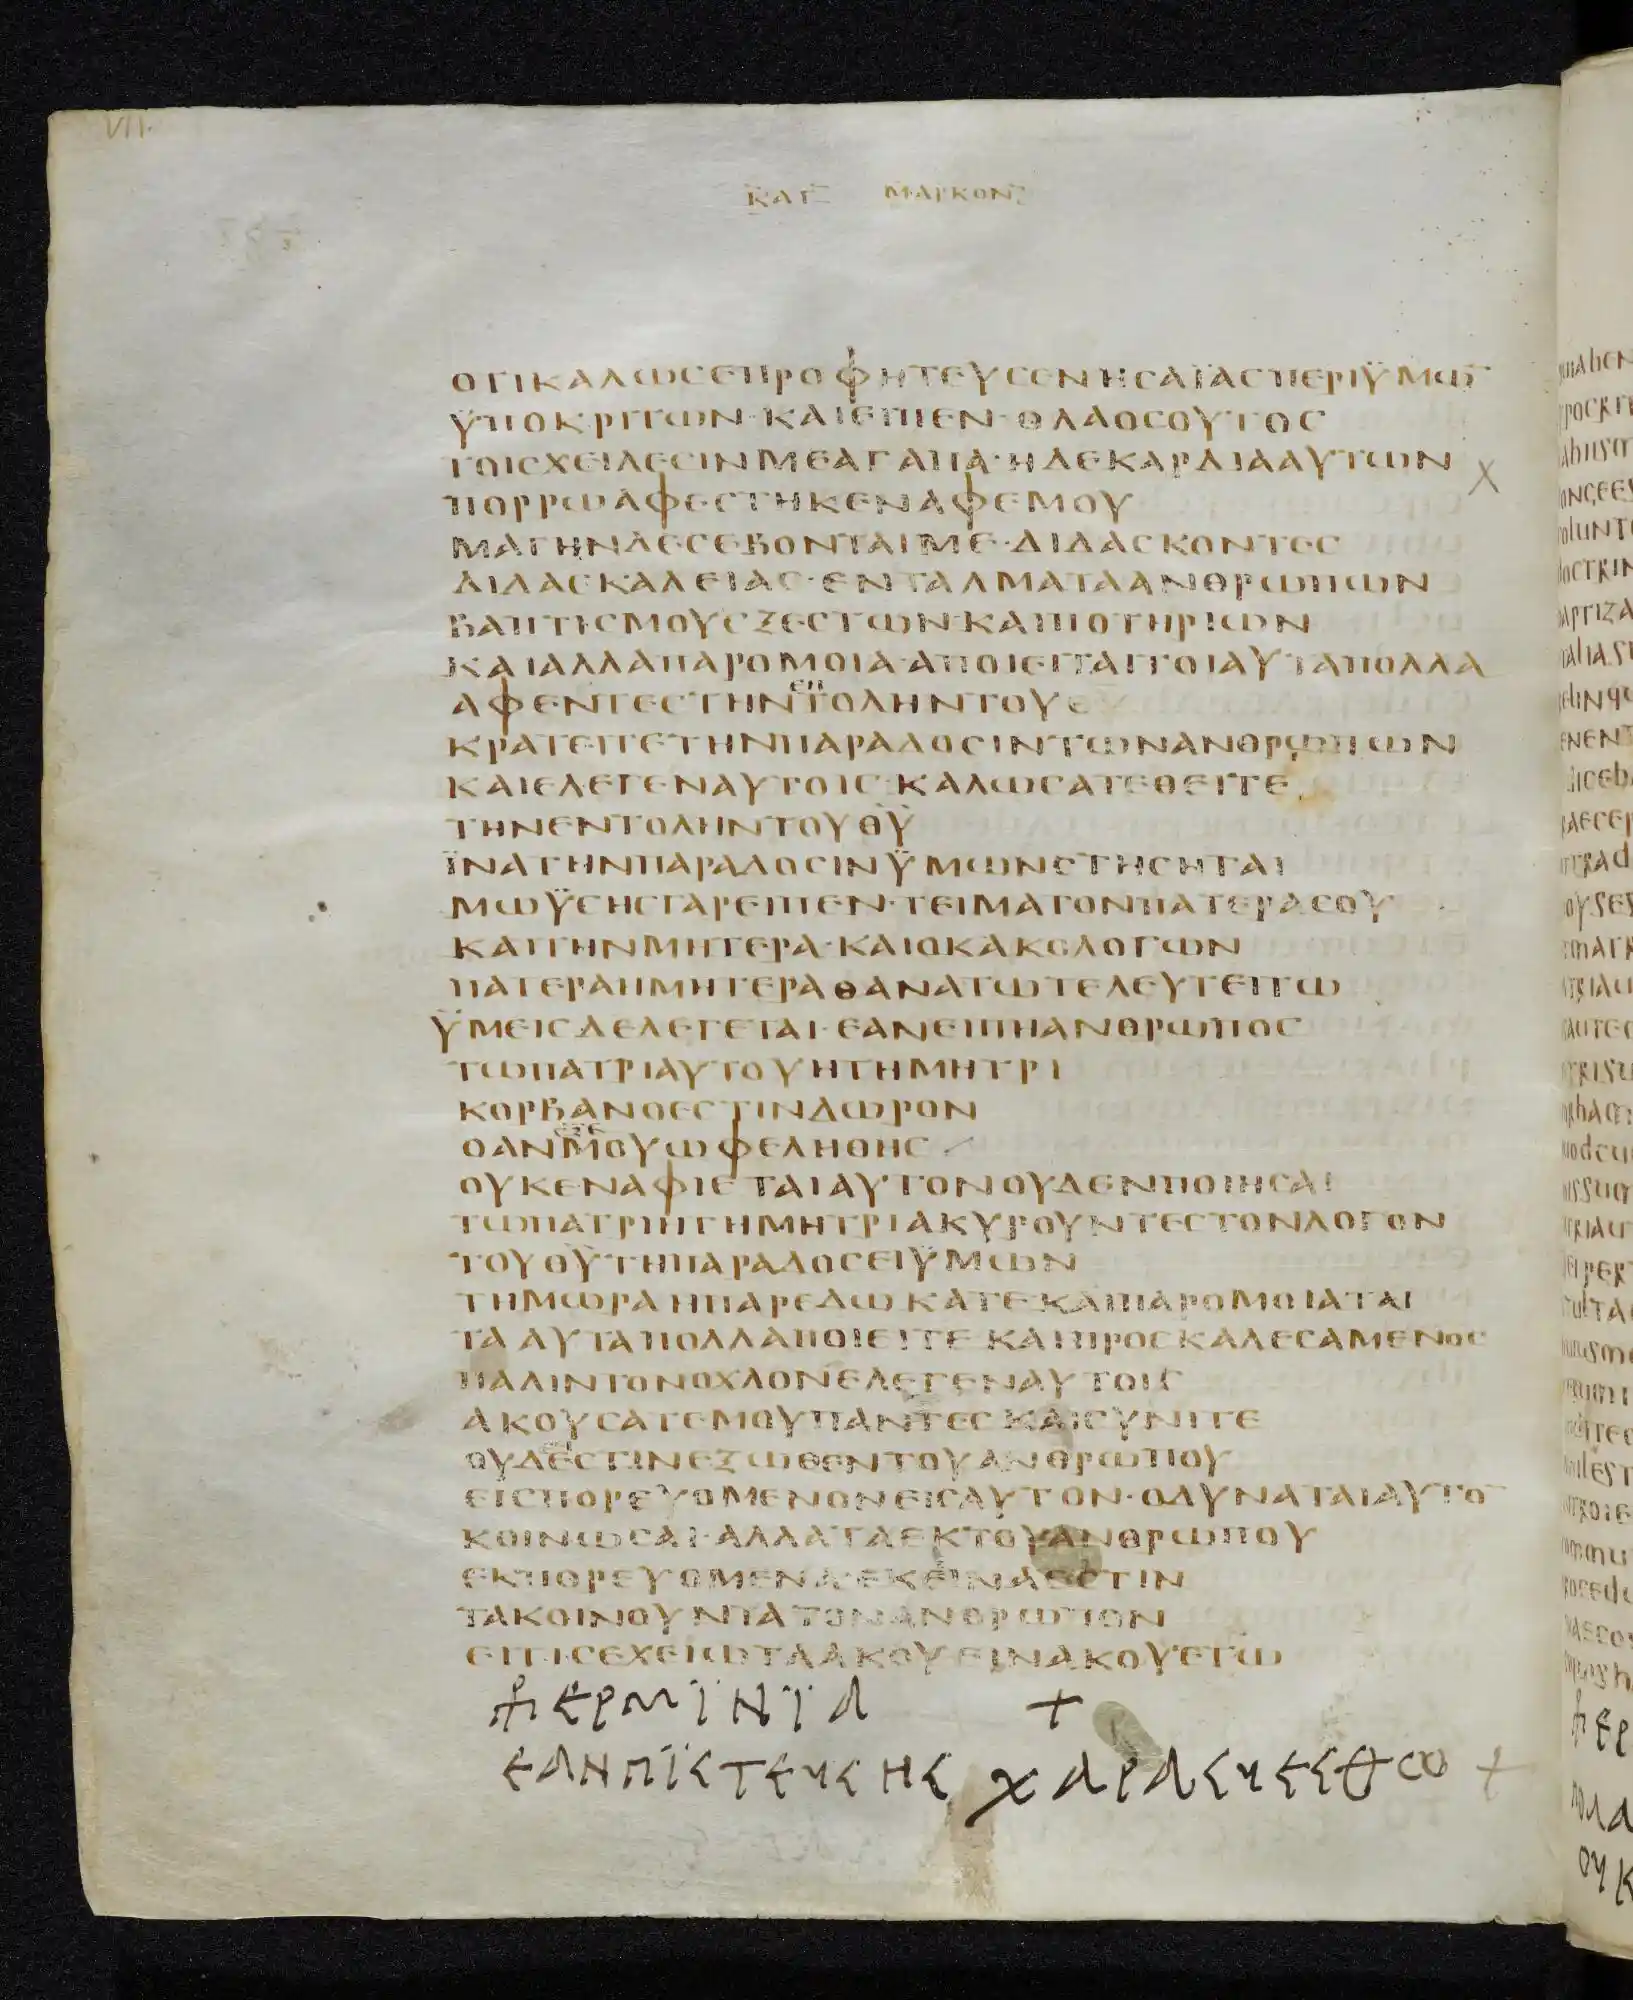 VII.
ΚΑΤ ΜΑΡΚΟΝ
ΟΤΙΚΑΛΩΣΕΠΡΟΦΗΤΕΥΣΕΝΗΣΑΪΑΣΠΕΡΙΫΜΩ̅
ΫΠΟΚΡΙΤΩΝ·ΚΑΙΕΙΠΕΝ·ΟΛΑΟΣΟΥΤΟΣ
ΤΟΙΣΧΕΙΛΕΣΙΝΜΕΑΓΑΠΑ·ΗΔΕΚΑΡΔΙΑΑΥΤΩΝ
ΠΟΡΡΩΑΦΕΣΤΗΚΕΝΑΦΕΜΟΥ
ΜΑΤΗΝΔΕΣΕΒΟΝΤΑΙΜΕ·ΔΙΔΑΣΚΟΝΤΕΣ
ΔΙΔΑΣΚΑΛΕΙΑΣ·ΕΝΤΑΛΜΑΤΑΑΝΘΡΩΠΩΝ
ΒΑΠΤΙΣΜΟΥΣΞΕΣΤΩΝΚΑΙΠΟΤΗΡΙΩΝ
ΚΑΙΑΛΛΑΠΑΡΟΜΟΙΑ·ΑΠΟΙΕΙΤΑΙΤΟΙΑΥΤΑΠΟΛΛΑ
ΑΦΕΝΤΕΣΤΗΝΕΝΤΟΛΗΝΤΟΥΘ̅Υ̅
ΚΡΑΤΕΙΤΕΤΗΝΠΑΡΑΔΟΣΙΝΤΩΝΑΝΘΡΩΠΩΝ
ΚΑΙΕΛΕΓΕΝΑΥΤΟΙΣ·ΚΑΛΩΣΑΤΕΘΕΙΤΕ
ΤΗΝΕΝΤΟΛΗΝΤΟΥΘ̅Υ̅
ΪΝΑΤΗΝΠΑΡΑΔΟΣΙΝΫΜΩΝΣΤΗΣΗΤΑΙ
ΜΩΫΣΗΣΓΑΡΕΙΠΕΝ·ΤΕΙΜΑΤΟΝΠΑΤΕΡΑΣΟΥ
ΚΑΙΤΗΝΜΗΤΕΡΑ·ΚΑΙΟΚΑΚΟΛΟΓΩΝ
ΠΑΤΕΡΑΗΜΗΤΕΡΑΘΑΝΑΤΩΤΕΛΕΥΤΕΙΤΩ
ΫΜΕΙΣΔΕΛΕΓΕΤΑΙ·ΕΑΝΕΙΠΗΑΝΘΡΩΠΟΣ
ΤΩΠΑΤΡΙΑΥΤΟΥΗΤΗΜΗΤΡΙ
ΚΟΡΒΑΝΟΕΣΤΙΝΔΩΡΟΝ
ΟΑΝΕΞΕΜΟΥΩΦΕΛΗΘΗΣ
ΟΥΚΕΝΑΦΙΕΤΑΙΑΥΤΟΝΟΥΔΕΝΠΟΙΗΣΑΙ
ΤΩΠΑΤΡΙΗΤΗΜΗΤΡΙΑΚΥΡΟΥΝΤΕΣΤΟΝΛΟΓΟΝ
ΤΟΥΘ̅Υ̅ΤΗΠΑΡΑΔΟΣΕΙΫΜΩΝ
ΤΗΜΩΡΑΗΠΑΡΕΔΩΚΑΤΕ·ΚΑΙΠΑΡΟΜΟΙΑΤΑΙ
ΤΑΑΥΤΑΠΟΛΛΑΠΟΙΕΙΤΕ·ΚΑΙΠΡΟΣΚΑΛΕΣΑΜΕΝΟΣ
ΠΑΛΙΝΤΟΝΟΧΛΟΝΕΛΕΓΕΝΑΥΤΟΙΣ
ΑΚΟΥΣΑΤΕΜΟΥΠΑΝΤΕΣΚΑΙΣΥΝΙΤΕ
ΟΥΔΕΣΤΙΝΕΞΩΘΕΝΤΟΥΑΝΘΡΩΠΟΥ
ΕΙΣΠΟΡΕΥΟΜΕΝΟΝΕΙΣΑΥΤΟΝ·ΟΔΥΝΑΤΑΙΑΥΤΟ̅
ΚΟΙΝΩΣΑΙ·ΑΛΛΑΤΑΕΚΤΟΥΑΝΘΡΩΠΟΥ
ΕΚΠΟΡΕΥΟΜΕΝΑ·ΕΚΕΙΝΑΕΣΤΙΝ
ΤΑΚΟΙΝΟΥΝΤΑΤΟΝΑΝΘΡΩΠΟΝ
ΕΙΤΙΣΕΧΕΙΩΤΑΑΚΟΥΕΙΝΑΚΟΥΕΤΩ
ΕΡΜΪΝΪΑ +
ΕΑΝΠΪΣΤΕΥΣΗΣ ΧΑΡΑΣΥΕΣΘΩ +